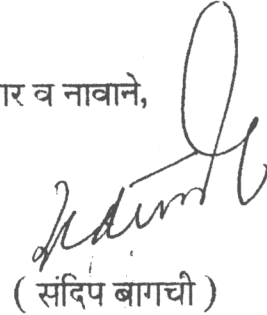 ार व नावाने,
( संदिप बागची )